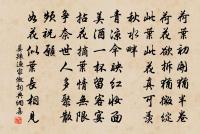 荷葉初開猶半卷
荷花欲拆猶微綻
此葉此花真可羨
秋水畔
青涼傘映紅妝面
美酒一杯留客宴
拈花摘葉情無限
爭奈世人多聚散
頻祝願
如花似葉長相見
晏殊漁家傲詞